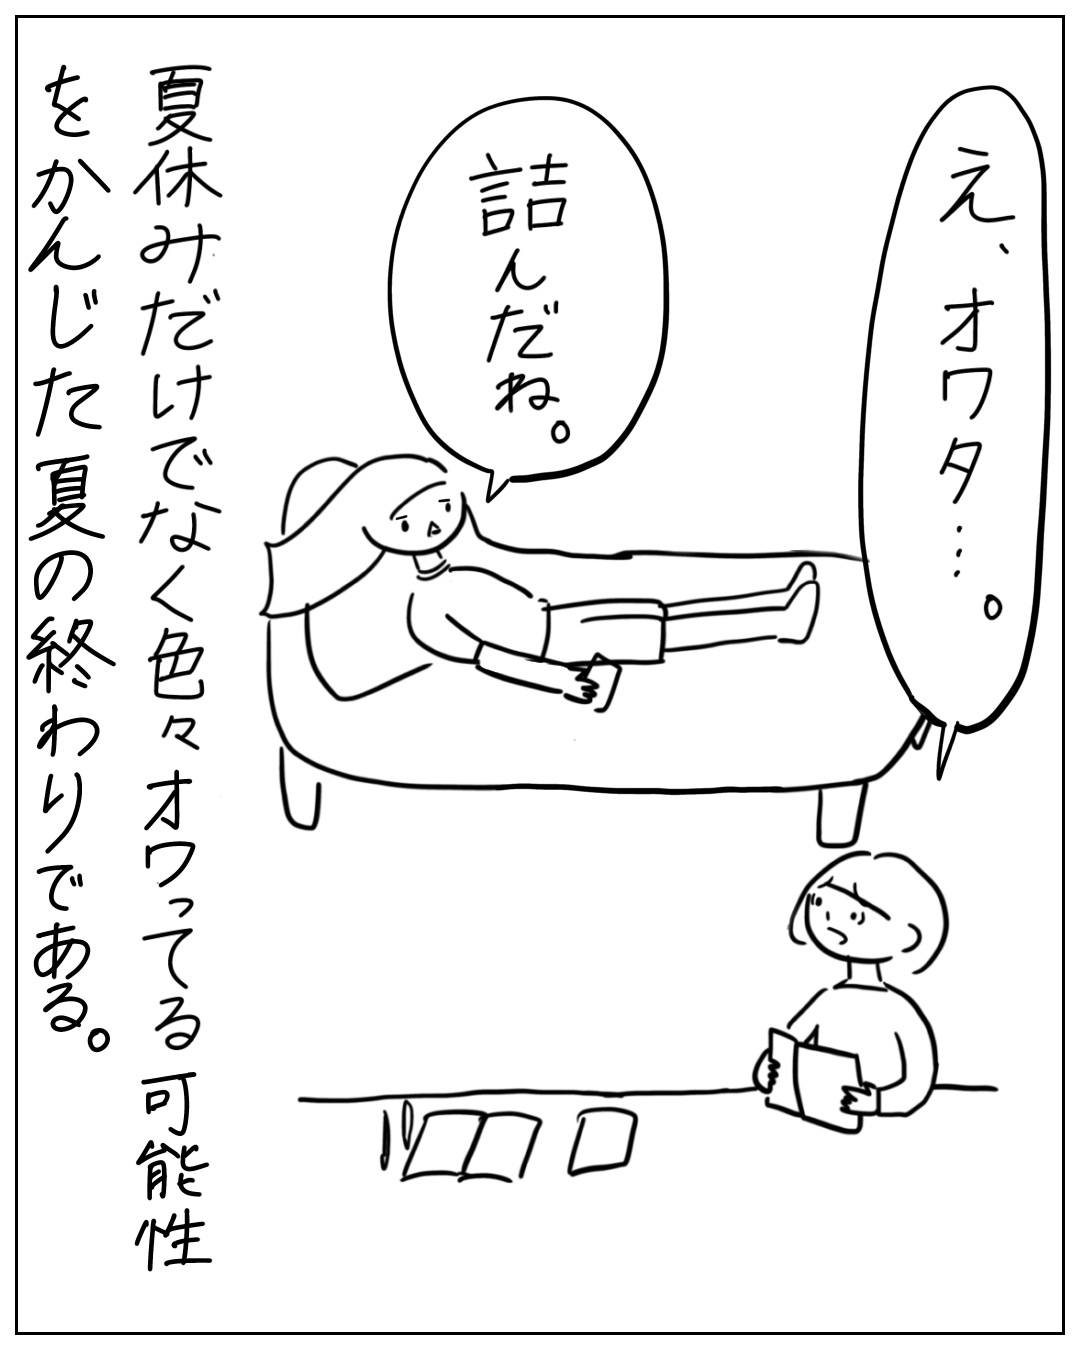 え、オワタ…。
詰んだね。
夏休みだけでなく色々オワってる可能性
をかんじた夏の終わりである。